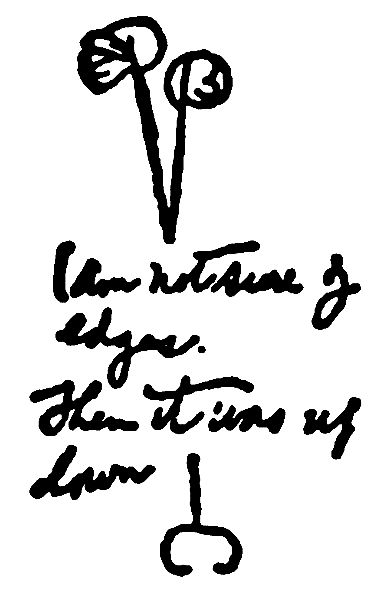 I am not sure of
edges.
Then it was up
down